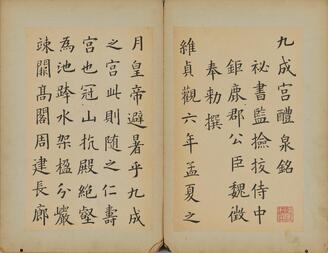 九成宮醴泉銘
祕書監撿挍侍中
鉅鹿郡公臣魏徵
奉勅撰
維貞觀六年孟夏之
月皇帝避暑乎九成
之宮此則隨之仁壽
宮也冠山抗殿絕壑
為池跨水架楹分巖
竦闕高閣周建長廊